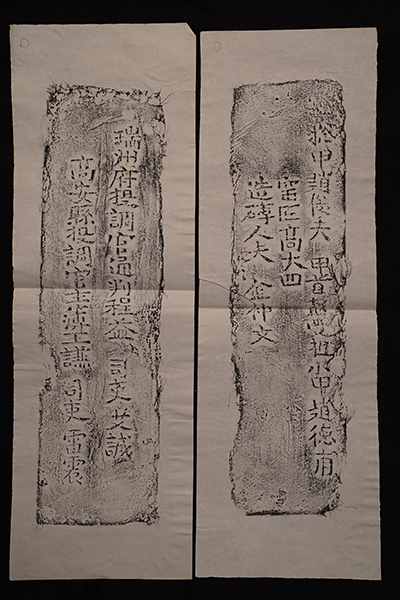 瑞州府提調官通判程益 司吏艾誠
高安縣提調官主簿王謙 司吏雷震
總甲趙俊夫 甲首 小甲趙德甫
窑匠高大四
造磚人夫金仲文